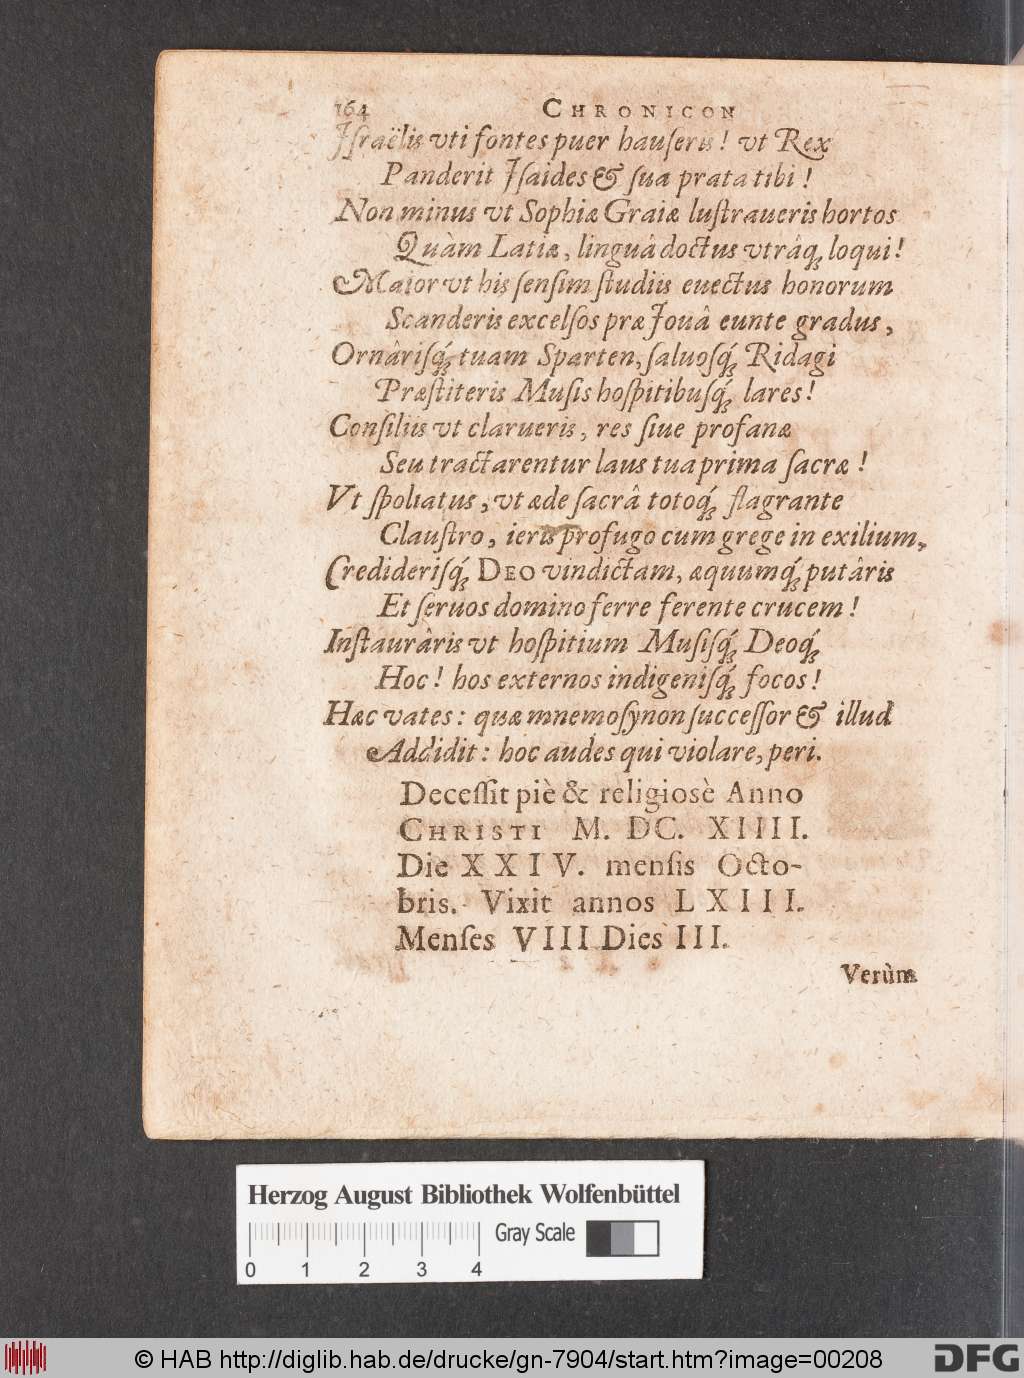 164 CHRONICON
Iſraëlis vti fontes puer hauſeris! vt Rex
Panderit Iſaides & ſua prata tibi!
Non minus vt Sophiæ Graiæ luſtraueris hortos
Quàm Latiæ, linguâ doctus vtrâq; loqui!
Maior vt his ſenſim ſtudiis euectus honorum
Scanderis excelſos præ Jouâ eunte gradus,
Ornâriſq́; tuam Sparten, ſaluoſq́; Ridagi
Præſtiteris Muſis hoſpitibuſq́; lares!
Conſiliis vt clarueris, res ſiue profanæ
Seu tractarentur laus tua prima ſacræ!
Vt ſpoliatus, vt æde ſacrâ totoq́; flagrante
Clauſtro, ieris profugo cum grege in exilium,
Credideriſq́; DEO vindictam, æquumq́; putâris
Et ſeruos domino ferre ferente crucem!
Inſtaurâris vt hoſpitium Muſiſq́; Deoq́;
Hoc! hos externos indigeniſq́; focos!
Hæc vates: quæ mnemoſynon ſucceſſor & illud
Addidit: hoc audes qui violare, peri.
Deceſſit piè & religiosè Anno
CHRISTI M. DC. XIIII.
Die XXIV. menſis Octo-
bris. Vixit annos LXIII.
Menſes VIII Dies III.
Verùm
Herzog August Bibliothek Wolfenbüttel
Gray Scale
0 1 2 3 4
© HAB http://diglib.hab.de/drucke/gn-7904/start.htm?image=00208
DFG